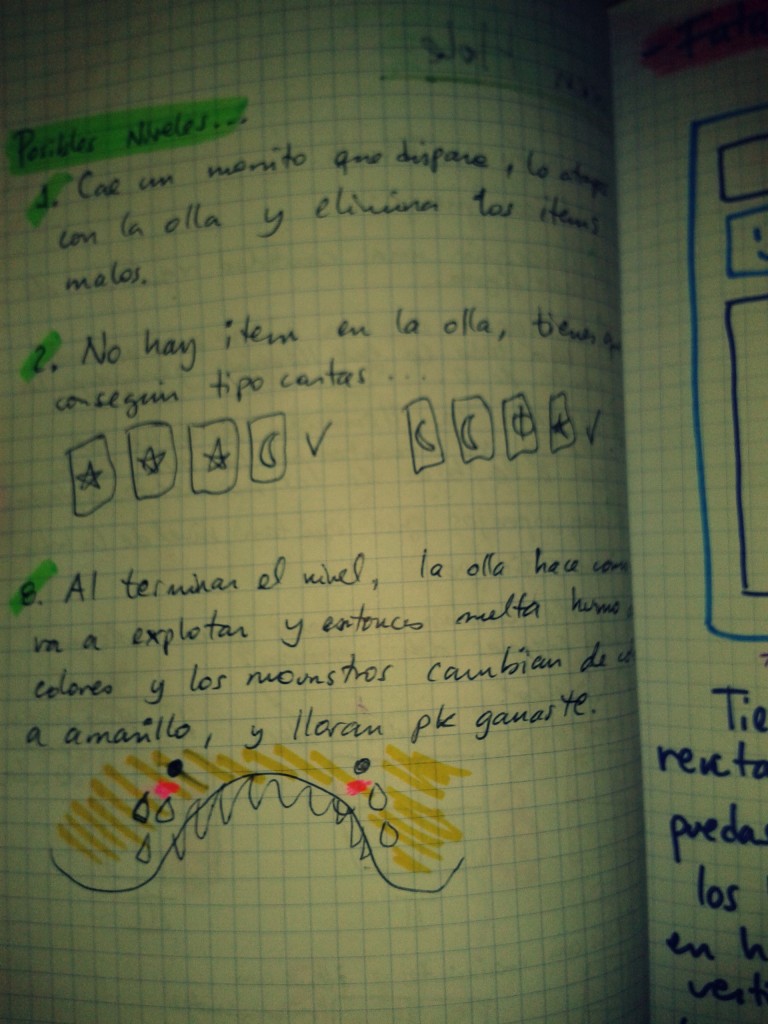 Posibles Niveles...
1. Cae un monito que dispara, lo
con la olla y elimina los items
malos.
2. No hay item en la olla, tienes
conseguir tipo cartas ...
8. Al terminar el nivel, la olla hace como
va a explotar y entonces suelta humo
colores y los mounstros cambian de
a amarillo, y lloran pk ganaste.
Tie
recta
puedas
los
en h
verti